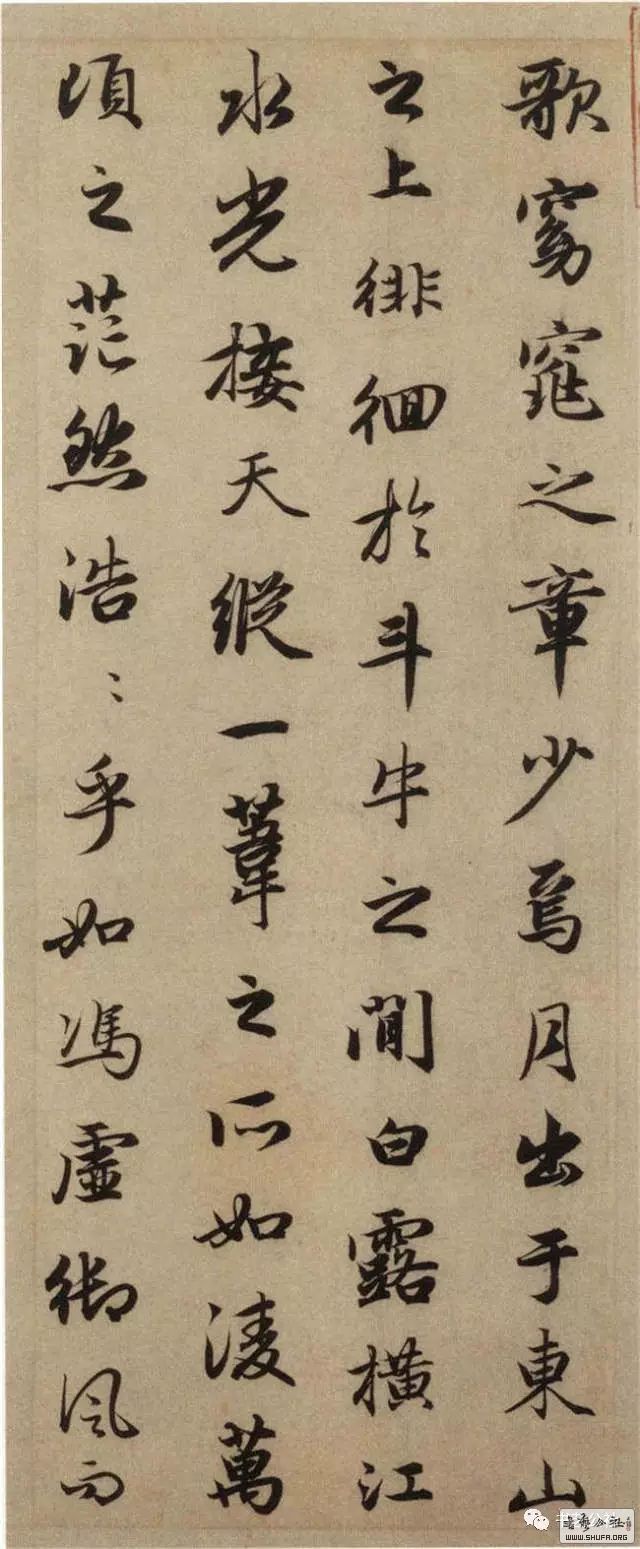 歌窈窕之章少焉月出于東山
之上徘徊於斗牛之間白露橫江
水光接天縱一葦之所如淩萬
頃之茫然浩〻乎如馮虛御風而
WWW.SHUFA.ORG